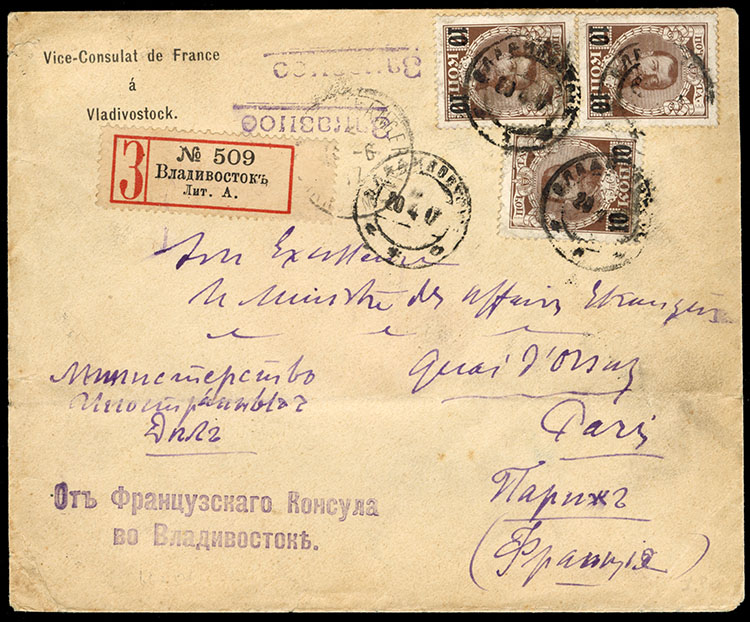 Vice-Consulat de France
á
Vladivostock.
Заказное
З
№ 509
Владивостокъ
Лит. А.
10 КОП 10
10 КОП 10
10 КОП 10
ВЛАДИВОСТОКЪ
20 4 17
Son Excellence
M Ministre des Affaires Etrangères
Quai d'Orsay
Paris
Парижъ
(Франція)
Министерство
Иностранныхъ
Дѣлъ
Отъ Французскаго Консула
во Владивостокѣ.